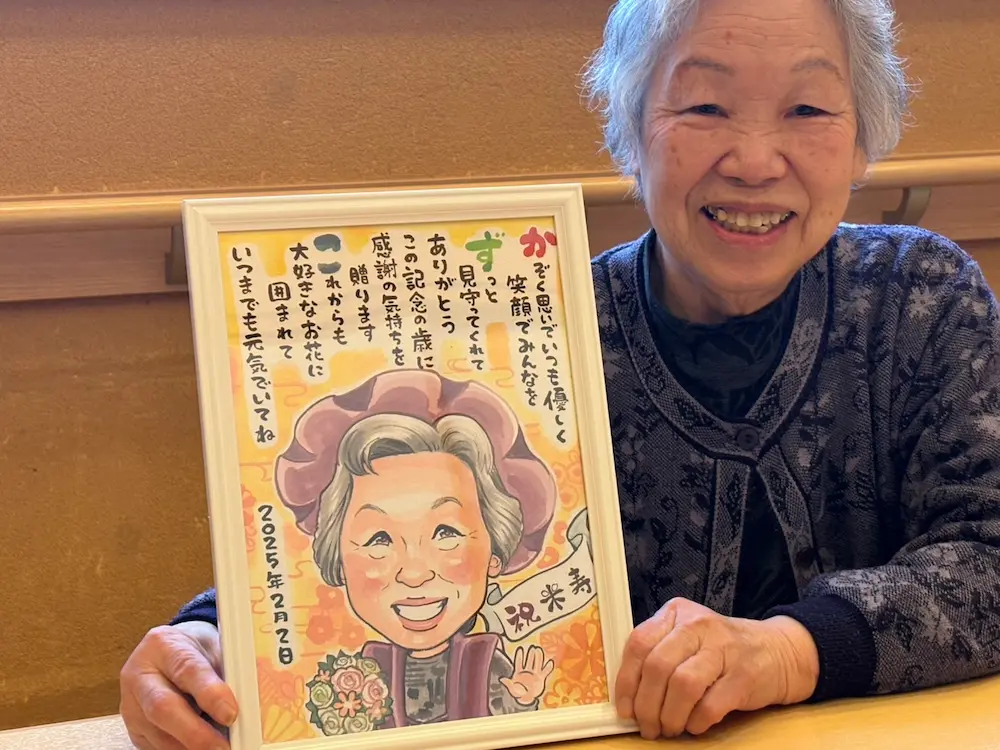 かぞく思いでいつも優しく
笑顔でみんなを
ずっと
見守ってくれて
ありがとう
この記念の歳に
感謝の気持ちを
贈ります
これからも
大好きなお花に
囲まれて
いつまでも元気でいてね
2025年2月2日
祝米寿